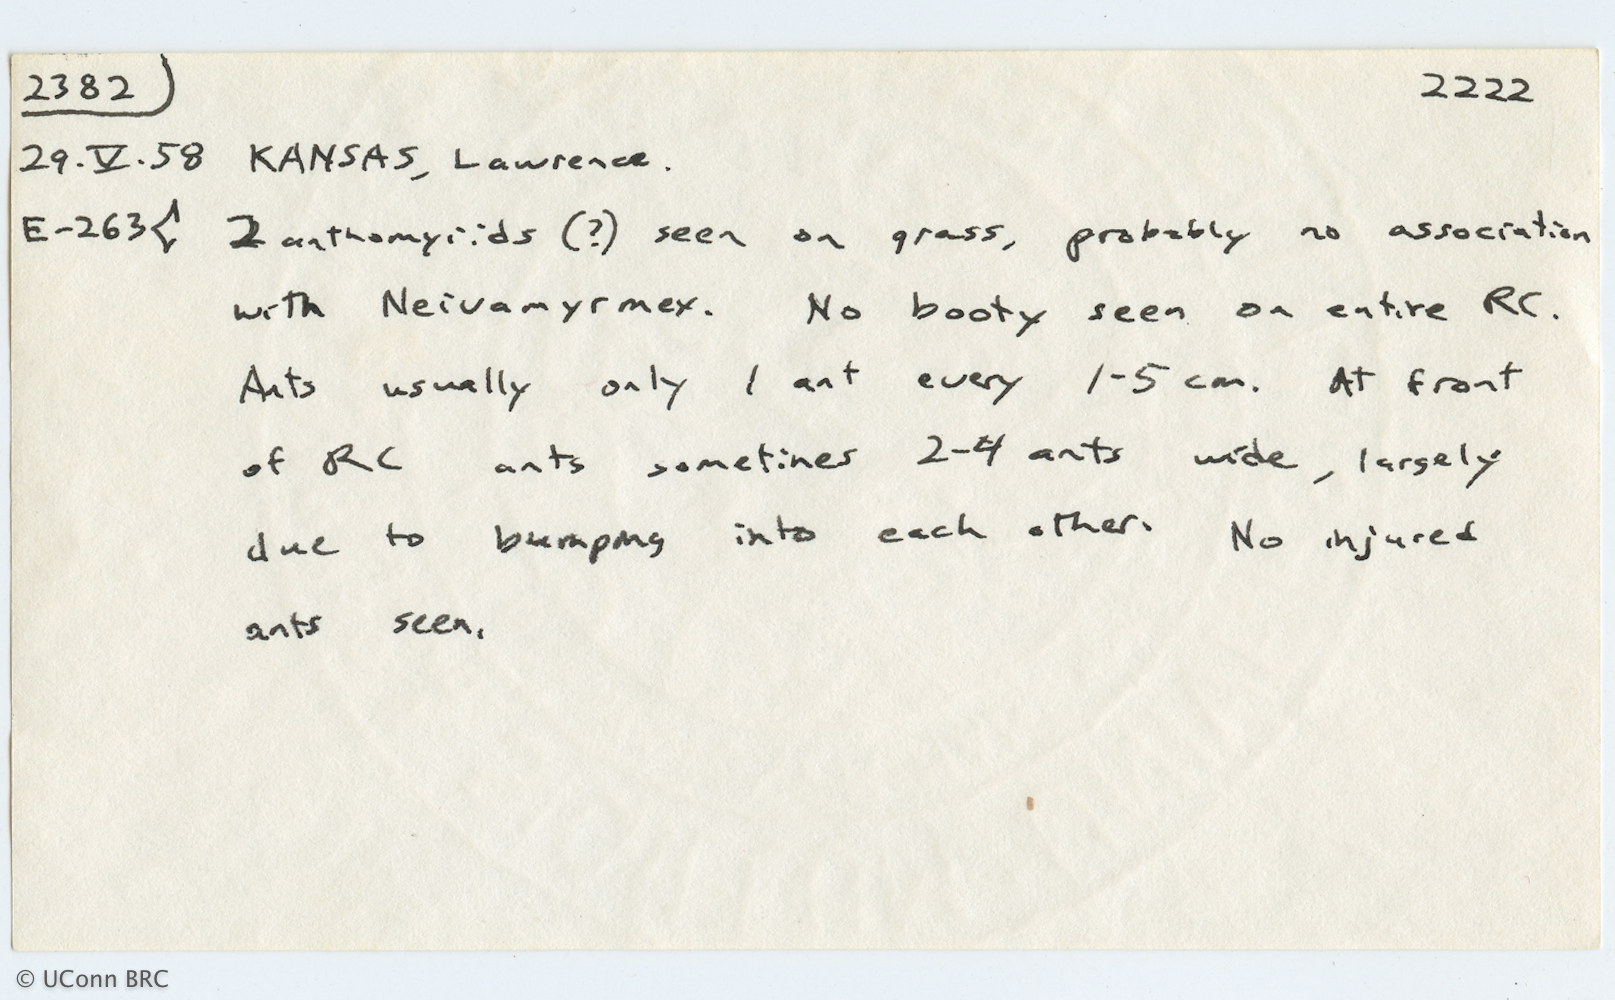 2382 2222
29.V.58 KANSAS, Lawrence.
E-263 2 anthomyiids (?) seen on grass, probably no association
with Neivamyrmex. No booty seen on entire RC.
Ants usually only 1 ant every 1-5 cm. At front
of RC ants sometimes 2-4 ants wide, largely
due to bumping into each other. No injured
ants seen.
© UConn BRC